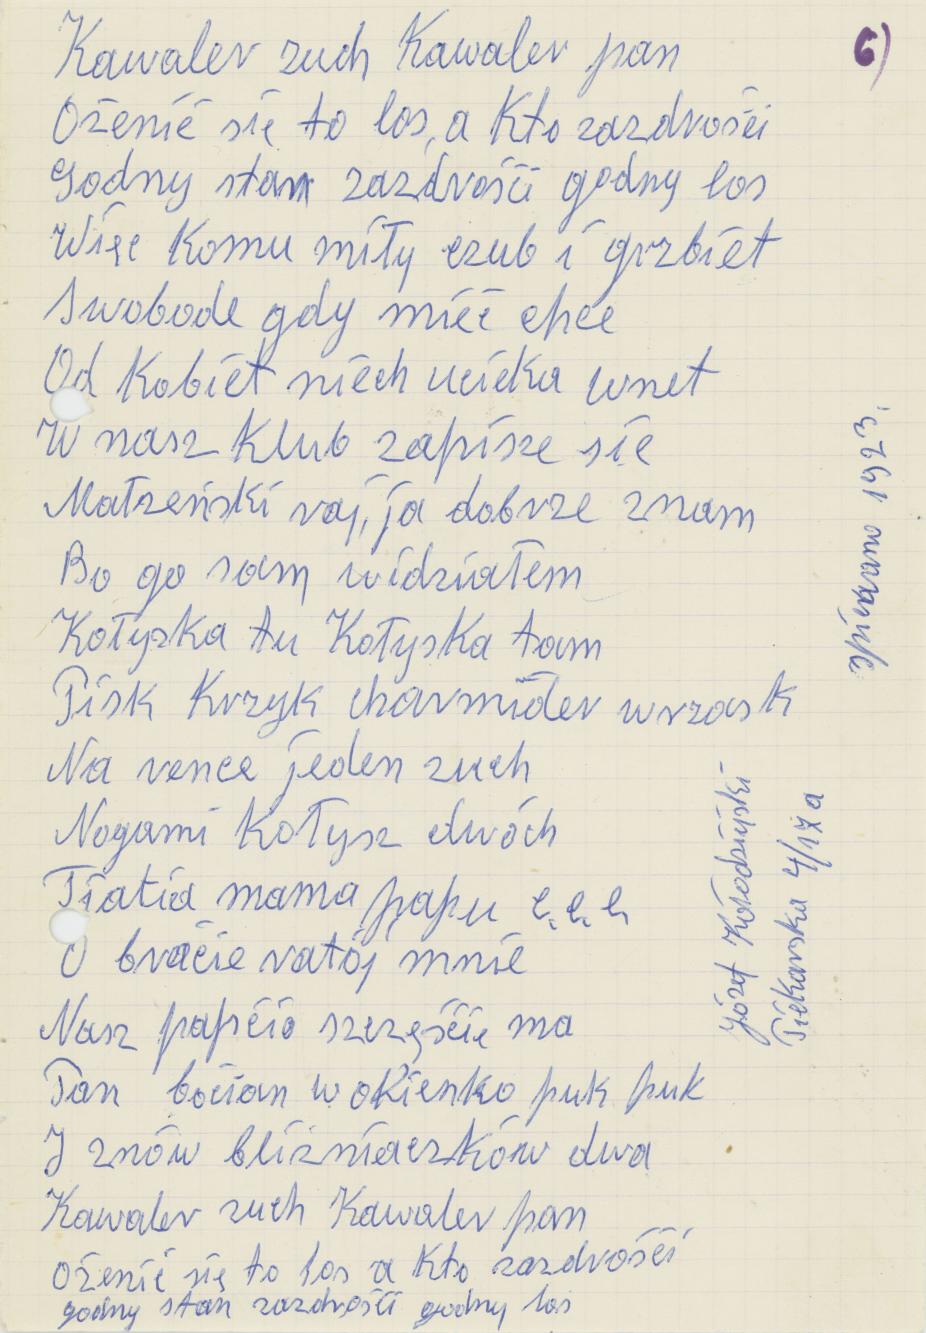 6)
Kawaler zuch Kawaler pan
Ożenić się to los, a Kto zazdrości
Godny stan zazdrości godny los
Więc Komu miły czub i grzbiet
Swobode gdy mieć chce
Od Kobiet niech ucieka wnet
W nasz Klub zapisze się
Małżeński raj, ja dobrze znam
Bo go sam widziałem
Kołyska tu Kołyska tam
Pisk Krzyk charmider wrzask
Na rence jeden zuch
Nogami Kołysz dwóch
Tiatia mama papu ę, ę, ę,
O bracie ratój mnie
Nasz papcio szczęście ma
Pan bocian w okienko puk puk
I znów bliźniaczków dwa
Kawaler zuch Kawaler pan
Ożenić się to los a Kto zazdrości
godny stan zazdrości godny los
śpiewano 1923.
Józef Kołodziejski
Piekarska 4/17a